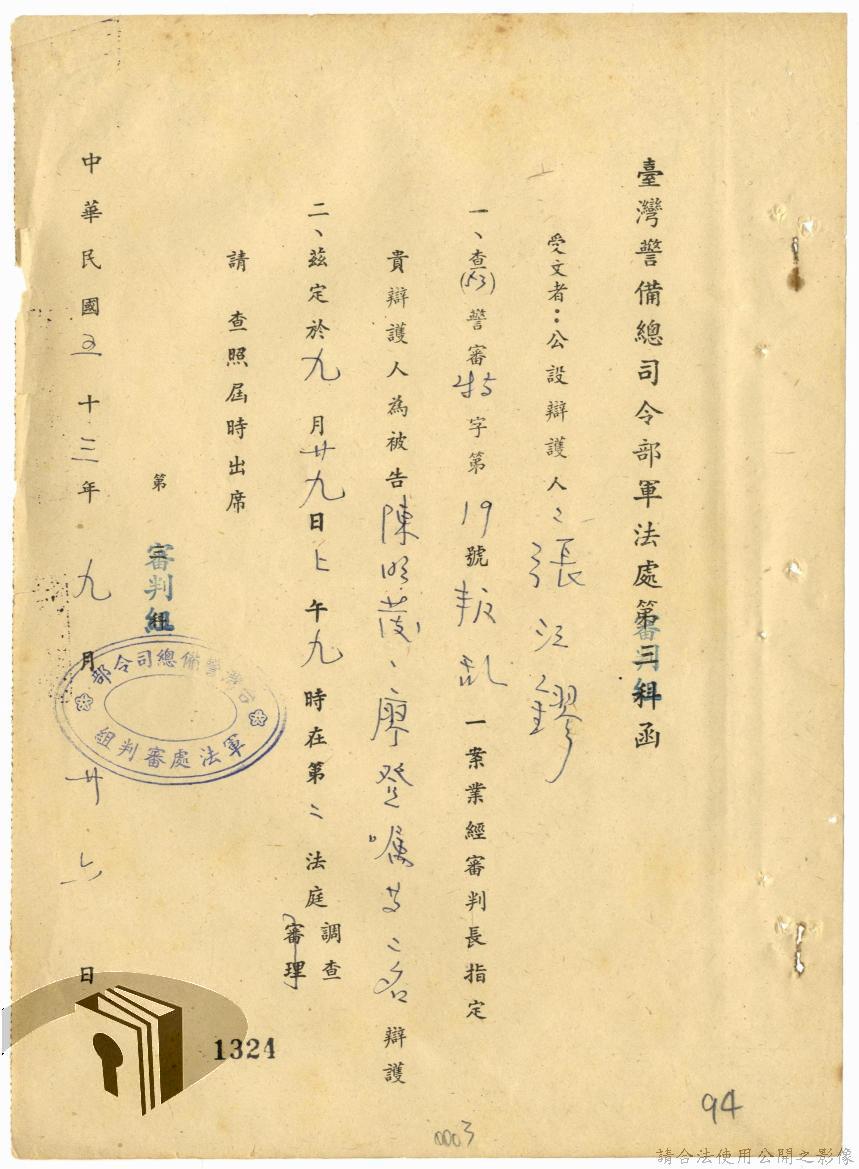 臺灣警備總司令部軍法處審判組函
受文者：公設辯護人
一、查(53)警審特字第19號叛乱一案業經審判長指定
貴辯護人為被告陳明發、廖登 等二名辯護
二、茲定於九月廿九日上午九時在第二法庭調查審理
請查照屆時出席
第 審判組
中華民國五十三年九月廿六日
台灣警備總司令部
軍法處審判組
1324
94
0003
請合法使用公開之影像